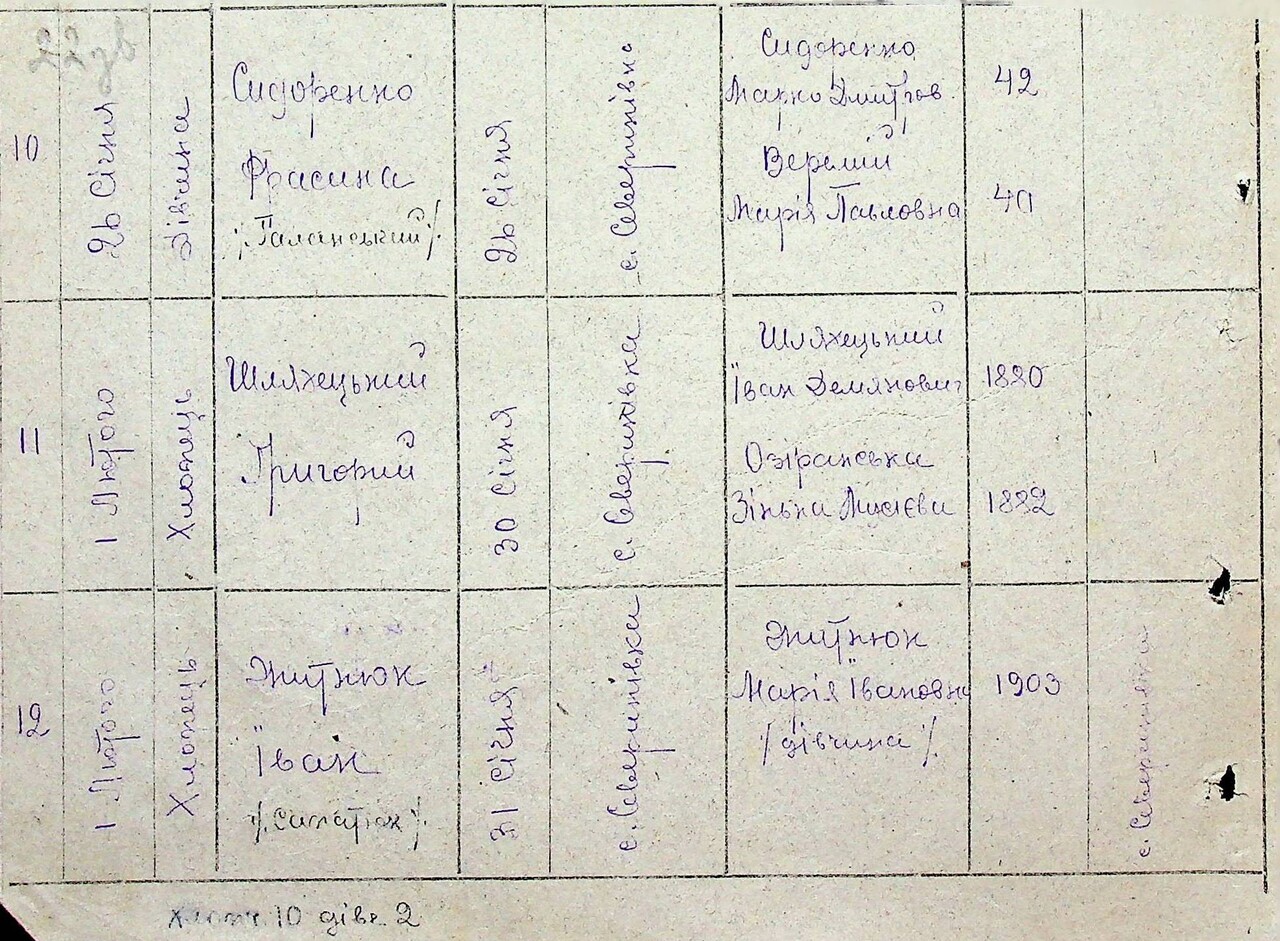 22 зв
10
26 Січня
Дівчина
Сидоренко
Фрасина
/.Галанський/.
26 Січня
с. Северинівка
Сидоренко
Марко Дмитров
Веремій
Марія Павловна
42
40
11
1 Лютого
Хлопець
Шляхецький
Григорий
30 Січня
с. Северинівка
Шляхецький
Іван Демянович
Озіранська
Зінька Мусієва
1880
1882
12
1 Лютого
Хлопець
Житнюк
Їван
31 Січня
с. Северинівка
Житнюк
Марія Івановна
/дівчина/.
1903
с. Северинівка
Хлопч. 10 дівч. 2